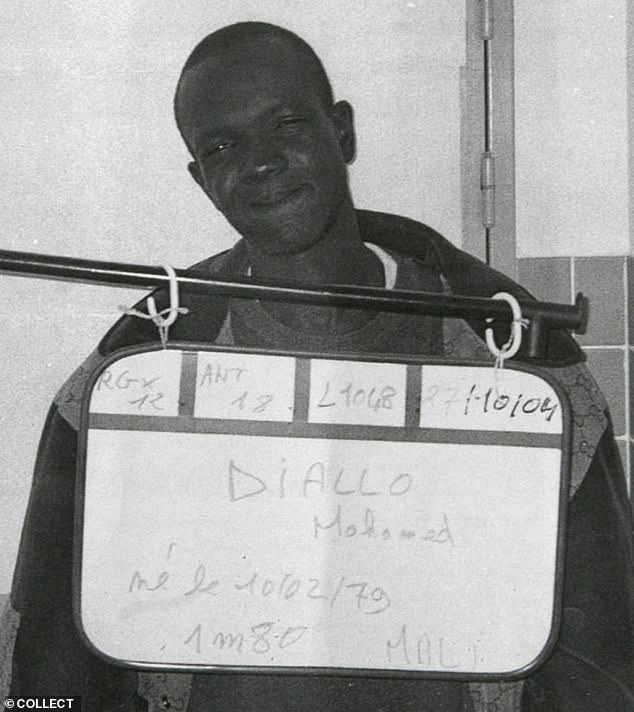 RGx ANT L1048 27/10/04
12 18
DiALLO
Mohamed
né le 10/02/79
1m80 MALi
COLLECT